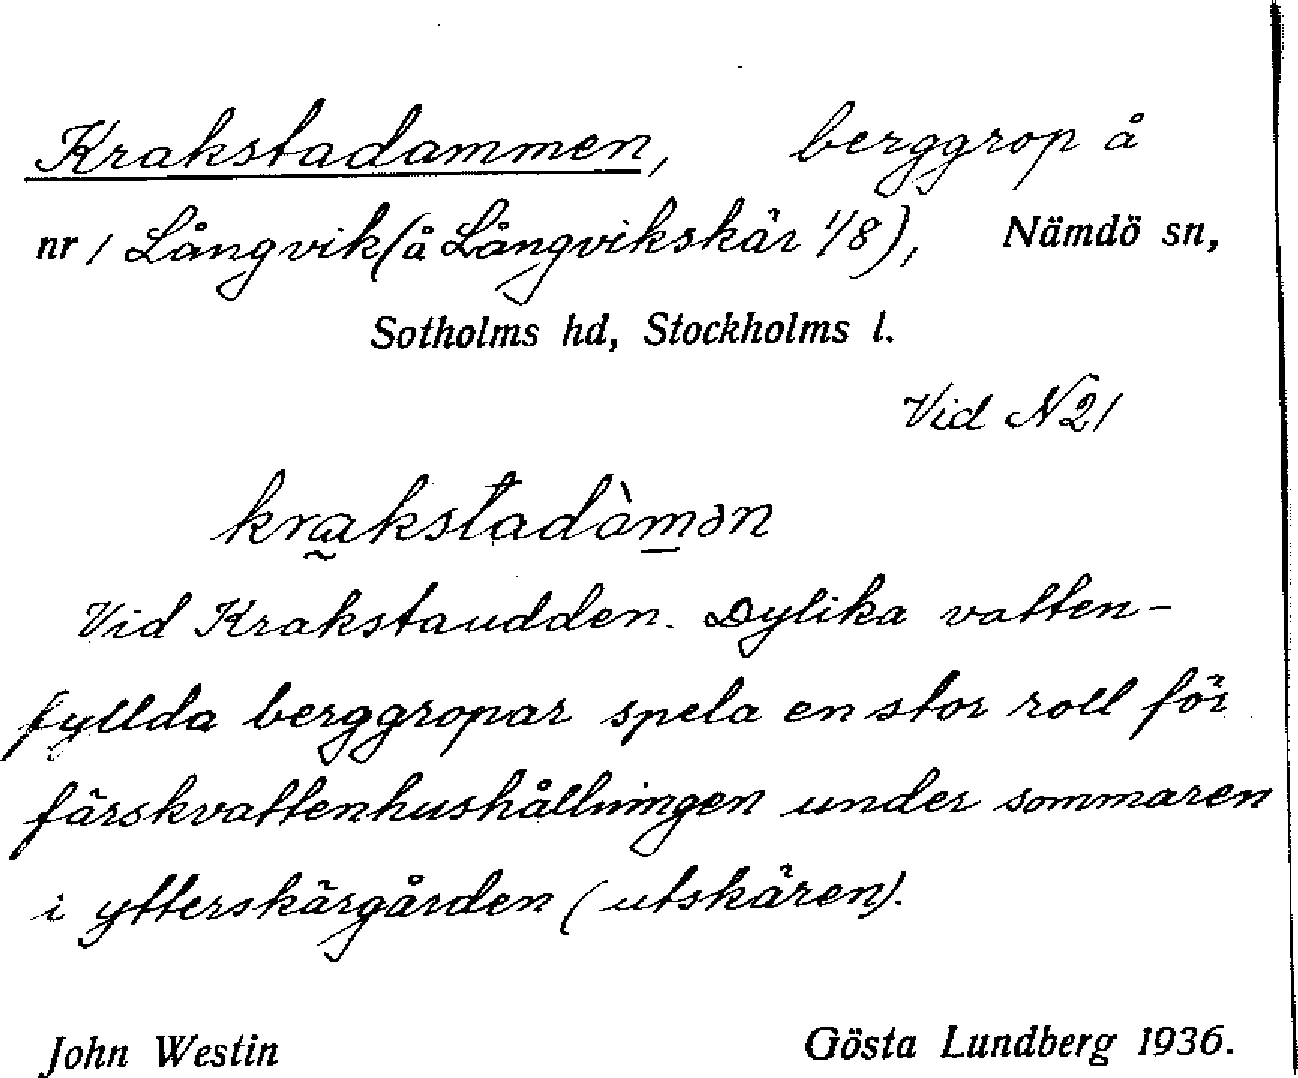 Krakstadammen, berggrop å
nr 1 Långvik (å Långvikskär 1/8), Nämdö sn,
Sotholms hd, Stockholms l.
Vid N21
krakstadàmən
Vid Krakstaudden. Dylika vatten-
fyllda berggropar spela en stor roll för
färskvattenhushållningen under sommaren
i ytterskärgården (utskären).
John Westin Gösta Lundberg 1936.